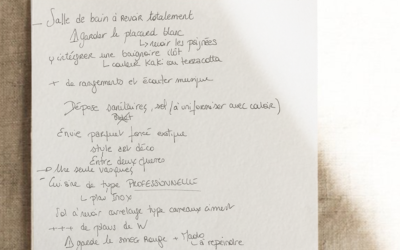 - Salle de bain à revoir totalement
⚠ garder le placard blanc
↳ revoir les poignées
y intégrer une baignoire îlot
↳ couleur Kaki ou terracotta
+ de rangements et écouter musique
Dépose sanitaires, sol (à uniformiser avec couloir)
Envie parquet foncé exotique
style art déco
Entre deux guerres
→ Une seule vasque
- Cuisine de type PROFESSIONNELLE
↳ plan Inox
Sol à revoir carrelage type carreaux ciment
+++ de plans de W
⚠ garde le smeg Rouge + Mado
↳ à repeindre